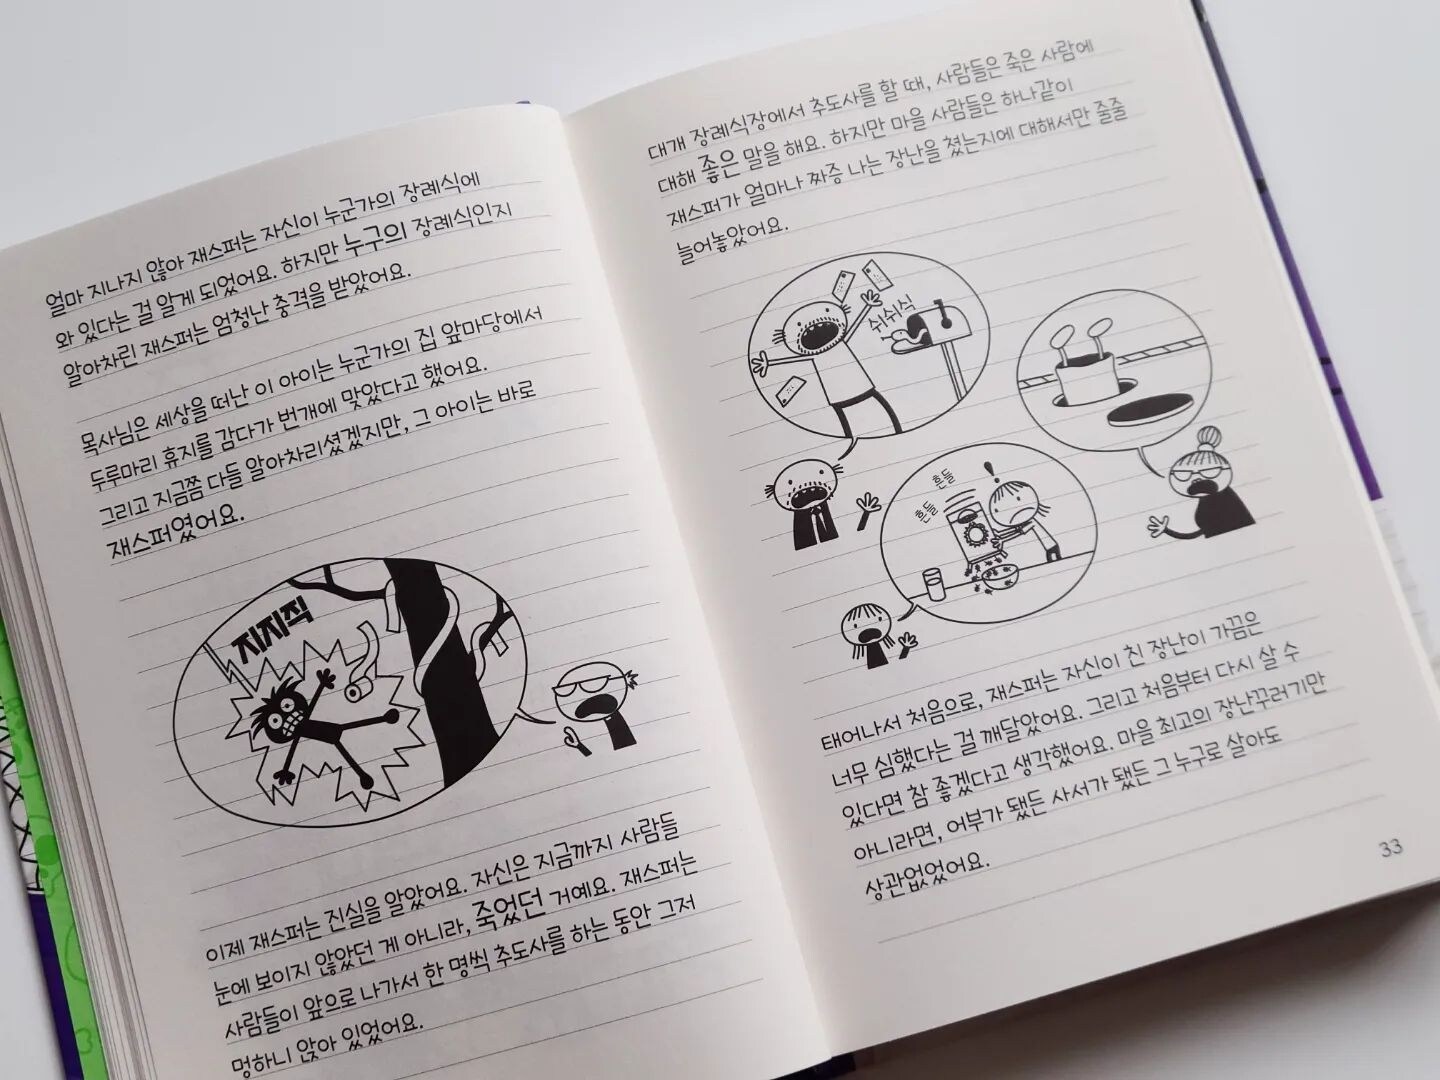 얼마 지나지 않아 재스퍼는 자신이 누군가의 장례식에
와 있다는 걸 알게 되었어요. 하지만 누구의 장례식인지
알아차린 재스퍼는 엄청난 충격을 받았어요.
목사님은 세상을 떠난 이 아이는 누군가의 집 앞마당에서
두루마리 휴지를 감다가 번개에 맞았다고 했어요.
그리고 지금쯤 다들 알아차리셨겠지만, 그 아이는 바로
재스퍼였어요.
지지직
이제 재스퍼는 진실을 알았어요. 자신은 지금까지 사람들
눈에 보이지 않았던 게 아니라, 죽었던 거예요. 재스퍼는
사람들이 앞으로 나가서 한 명씩 추도사를 하는 동안 그저
멍하니 앉아 있었어요.
대개 장례식장에서 추도사를 할 때, 사람들은 죽은 사람에
대해 좋은 말을 해요. 하지만 마을 사람들은 하나같이
재스퍼가 얼마나 짜증 나는 장난을 쳤는지에 대해서만 줄줄
늘어놓았어요.
쉬쉬식
흔들
흔들
!
태어나서 처음으로, 재스퍼는 자신이 친 장난이 가끔은
너무 심했다는 걸 깨달았어요. 그리고 처음부터 다시 살 수
있다면 참 좋겠다고 생각했어요. 마을 최고의 장난꾸러기만
아니라면, 어부가 됐든 사서가 됐든 그 누구로 살아도
상관없었어요.
33